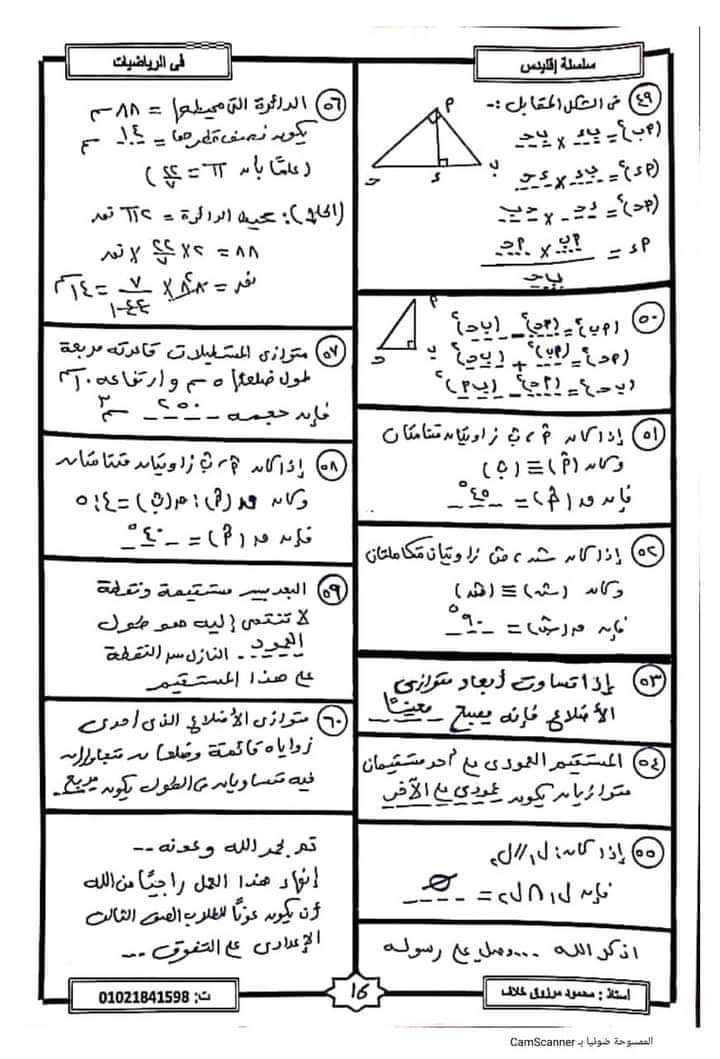 سلسلة إقليدس
فى الرياضيات
٤٩ فى الشكل المقابل :-
(أب)² = ب ء × ب حـ
(أء)² = ب ء × ء حـ
(أحـ)² = ء حـ × حـ ب
أء = أب × أحـ
ب حـ
٥٠ (أب)² = (أحـ)² - (ب حـ)²
(أحـ)² = (أب)² + (ب حـ)²
(ب حـ)² = (أحـ)² - (ب أ)²
٥١ إذا كان أ ، ب زاويتان متتامتان
وكان (أ) ≡ (ب)
فإن ق(أ) = ٤٥°
٥٢ إذا كان س ، ص زاويتان متكاملتان
وكان (س) ≡ (ص)
فإن ق(س) = ٩٠°
٥٣ إذا تساوت أبعاد متوازى
الأضلاع فإنه يصبح معينًا
٥٤ المستقيم العمودى على أحد مستقيمان
متوازيان يكون عمودى على الآخر
٥٥ إذا كان: ل١ // ل٢
فإن ل١ ∩ ل٢ = ∅
اذكر الله ... وصل على رسوله
٥٦ الدائرة التى محيطها = ٨٨ سم
يكون نصف قطرها = ١٤ سم
(علمًا بأن π = ٢٢/٧)
(الحل): محيط الدائرة = ٢ π نق
٨٨ = ٢ × ٢٢/٧ × نق
نق = ٨٨ × ٧/٤٤ = ١٤ سم
٥٧ متوازى المستطيلات قاعدته مربعة
طول ضلعها ٥ سم وارتفاعه ١٠ سم
فإن حجمه ٢٥٠ سم³
٥٨ إذا كان أ ، ب زاويتان متتامتان
وكان ق(أ) : ق(ب) = ٤ : ٥
فإن ق(أ) = ٤٠°
٥٩ البعد بين مستقيمة ونقطة
لا تنتمى إليه هو طول
العمود النازل من النقطة
على هذا المستقيم
٦٠ متوازى الأضلاع الذى إحدى
زواياه قائمة وضلعان متجاوران
فيه متساويان فى الطول يكون مربع
تم بحمد الله وعونه --
إنهاء هذا العمل راجيًا من الله
أن يكون عونًا لطلاب الصف الثالث
الإعدادى على التفوق --
أستاذ : محمود مرزوق خلاف
16
ت: 01021841598
الممسوحة ضوئيا بـ CamScanner